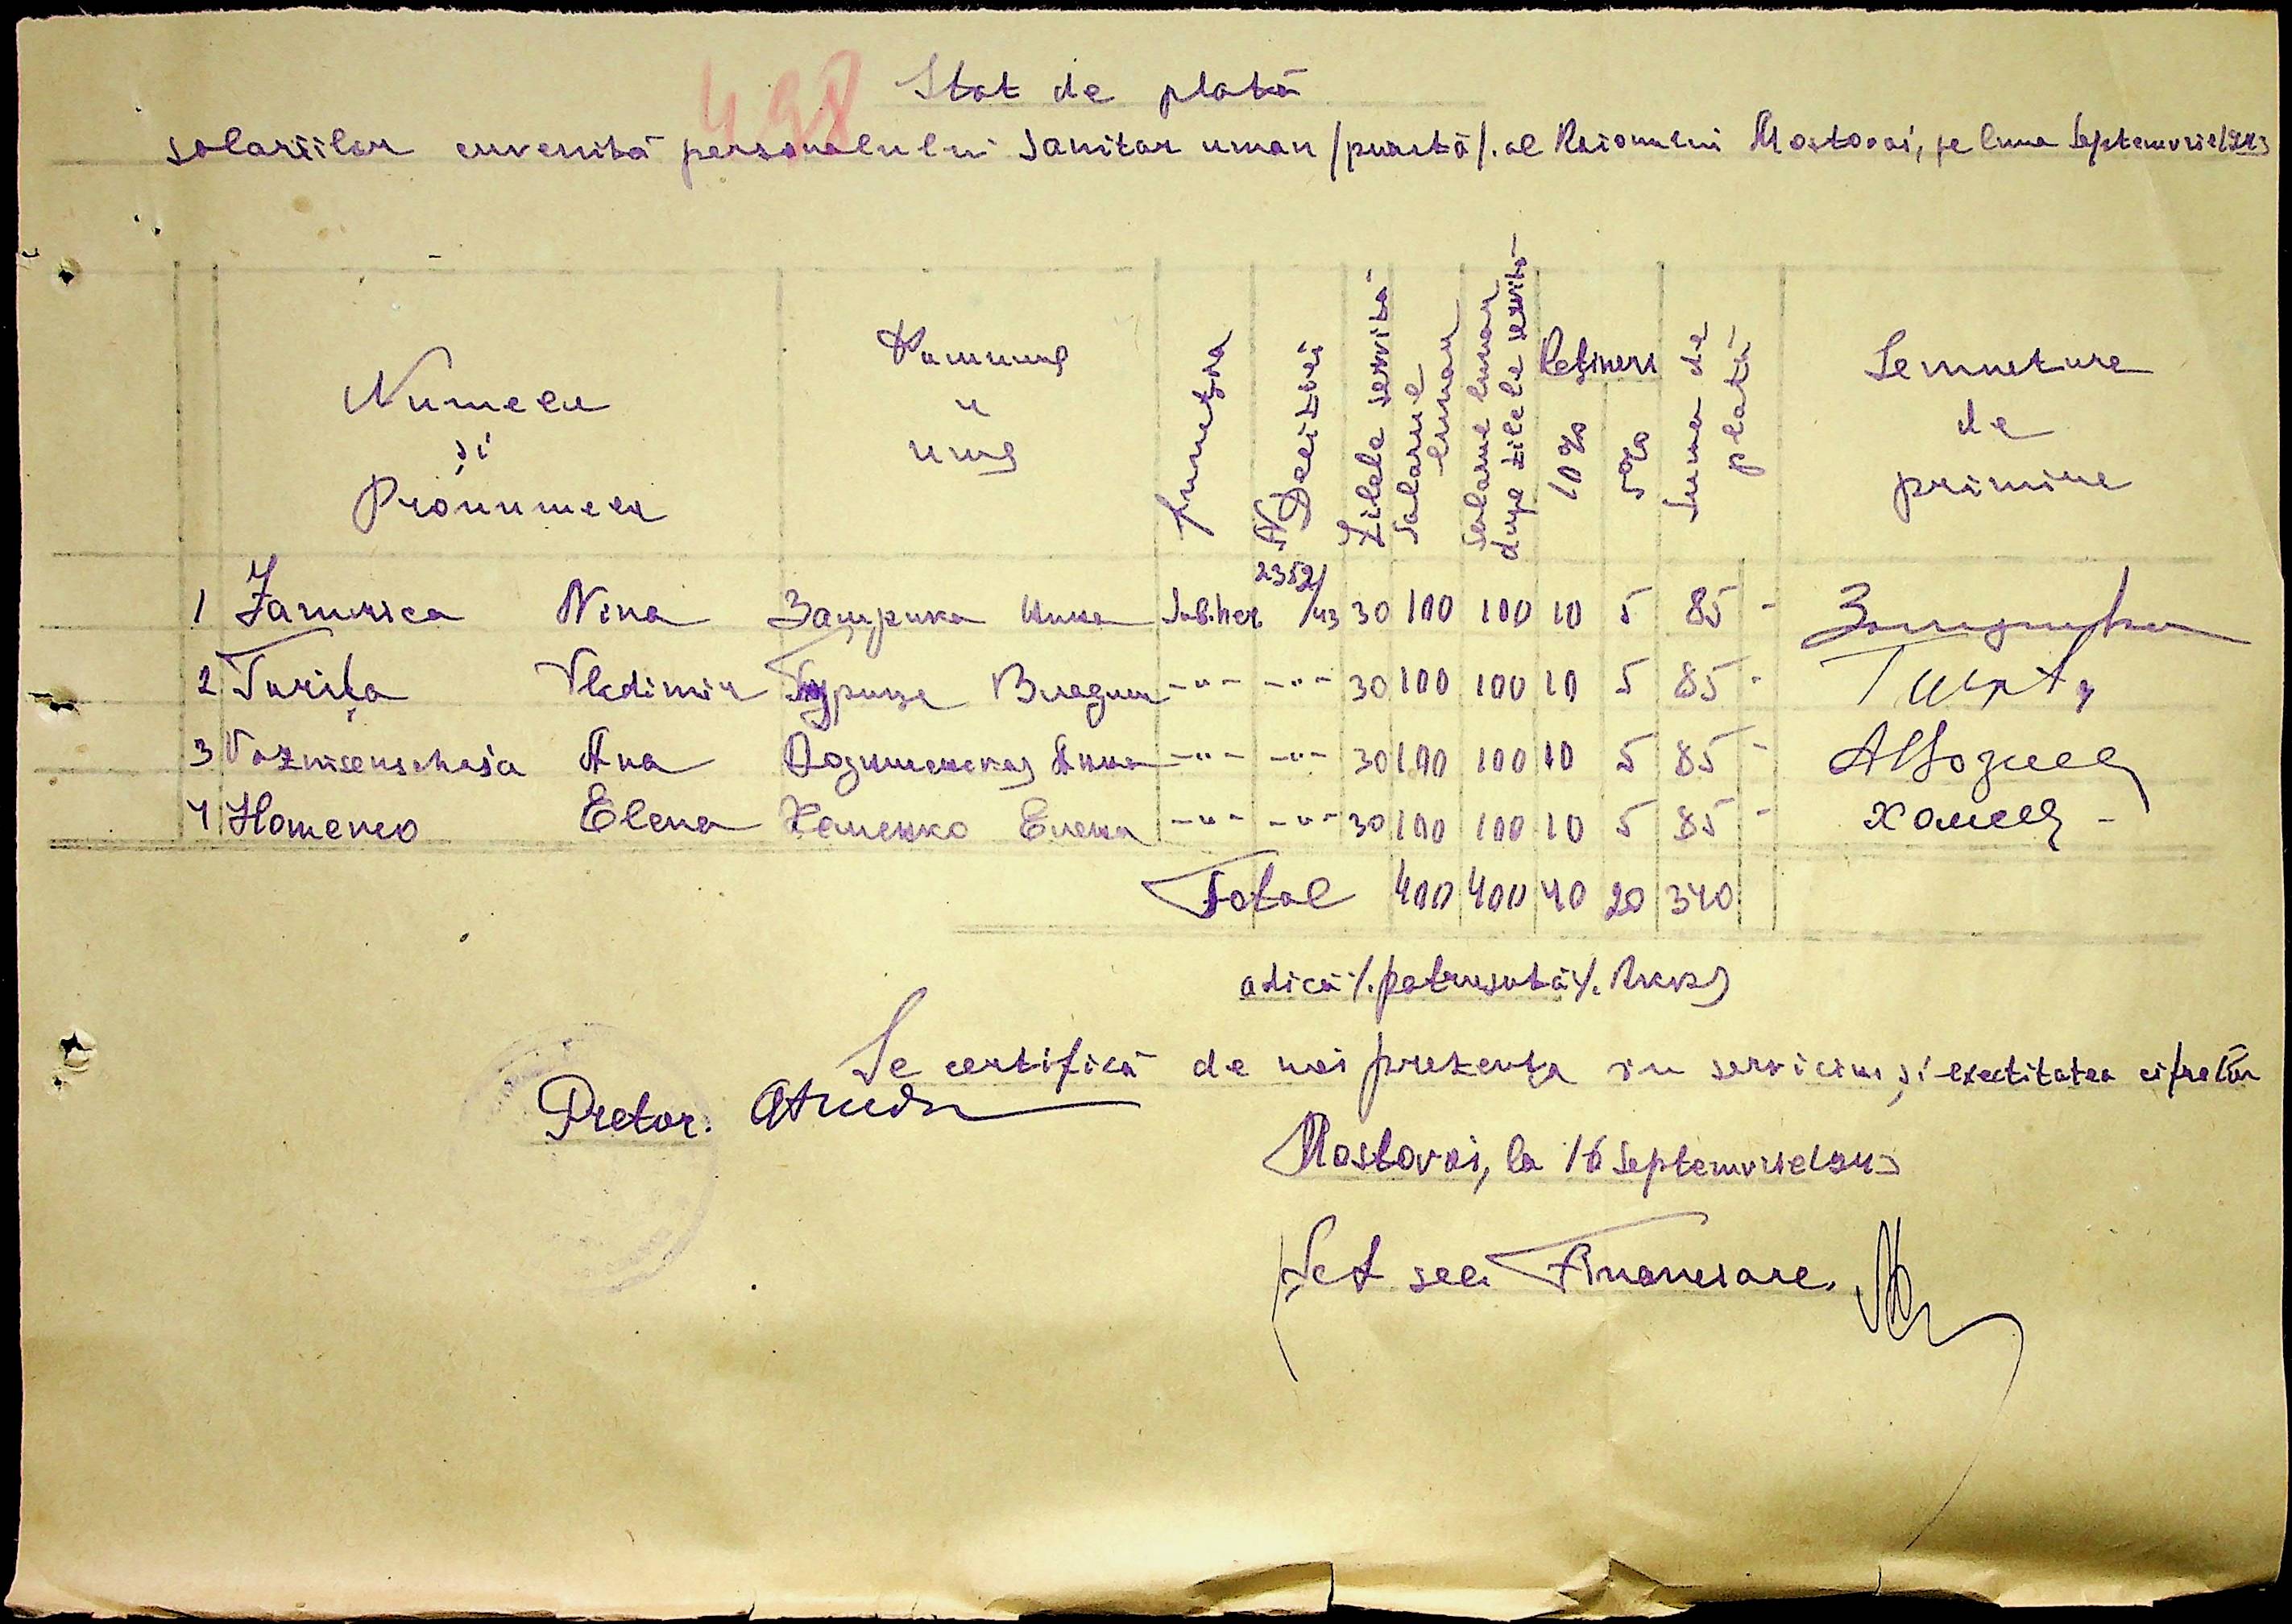 498
Stat de plată
salariilor cuvenită personalului sanitar uman /punctă/. al Raionului Mostovoi, pe luna Septemvrie 1943
Numele și Pronumele
Фамилия и имя
Funcția
N Deciziei
Zilele servite
Salarul lunar
Salarul lunar dupe zilele servite
Rețineri
10%
5%
Suma de plată
Semnature de primire
1 Zamrica Nina Замрика Нина Sub.her. 2352/43 30 100 100 10 5 85 -
2 Turița Vladimir Турица Владим -"- -"- 30 100 100 10 5 85 -
3 Voznisenschaia Ana Вознишенская Анна -"- -"- 30 100 100 10 5 85 -
4 Homenco Elena Хоменко Елена -"- -"- 30 100 100 10 5 85 -
Total 400 400 40 20 340
adică /.patrusută/. RKKS
Se certifică de noi prezența in serviciu și exactitatea cifrelor
Pretor.
Mostovoi, la 16 Septemvrie 1943
Șef sec. Financiare.